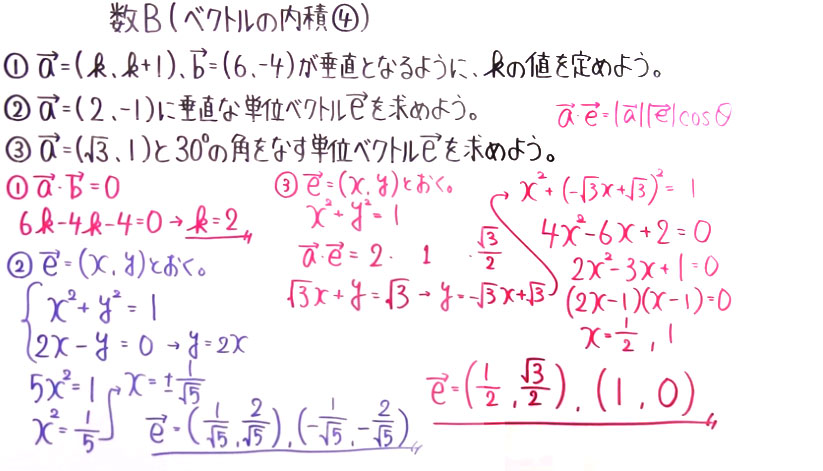 数B(ベクトルの内積④)
① a⃗=(k, k+1)、b⃗=(6, -4)が垂直となるように、kの値を定めよう。
② a⃗=(2, -1)に垂直な単位ベクトルe⃗を求めよう。
a⃗·e⃗=|a⃗||e⃗|cosθ
③ a⃗=(√3, 1)と30°の角をなす単位ベクトルe⃗を求めよう。
① a⃗·b⃗=0
6k-4k-4=0→k=2
② e⃗=(x, y)とおく。
x²+y²=1
2x-y=0→y=2x
5x²=1
x²=1/5
x=±1/√5
e⃗=(1/√5, 2/√5), (-1/√5, -2/√5)
③ e⃗=(x, y)とおく。
x²+y²=1
a⃗·e⃗=2·1·√3/2
√3x+y=√3→y=-√3x+√3
x²+(-√3x+√3)²=1
4x²-6x+2=0
2x²-3x+1=0
(2x-1)(x-1)=0
x=1/2, 1
e⃗=(1/2, √3/2), (1, 0)